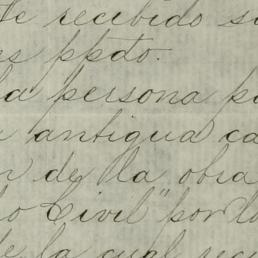 te recibido su
es ppdo.
la persona po
a antigua ca
n de la obra
do Civil" por lo
de la cual rec